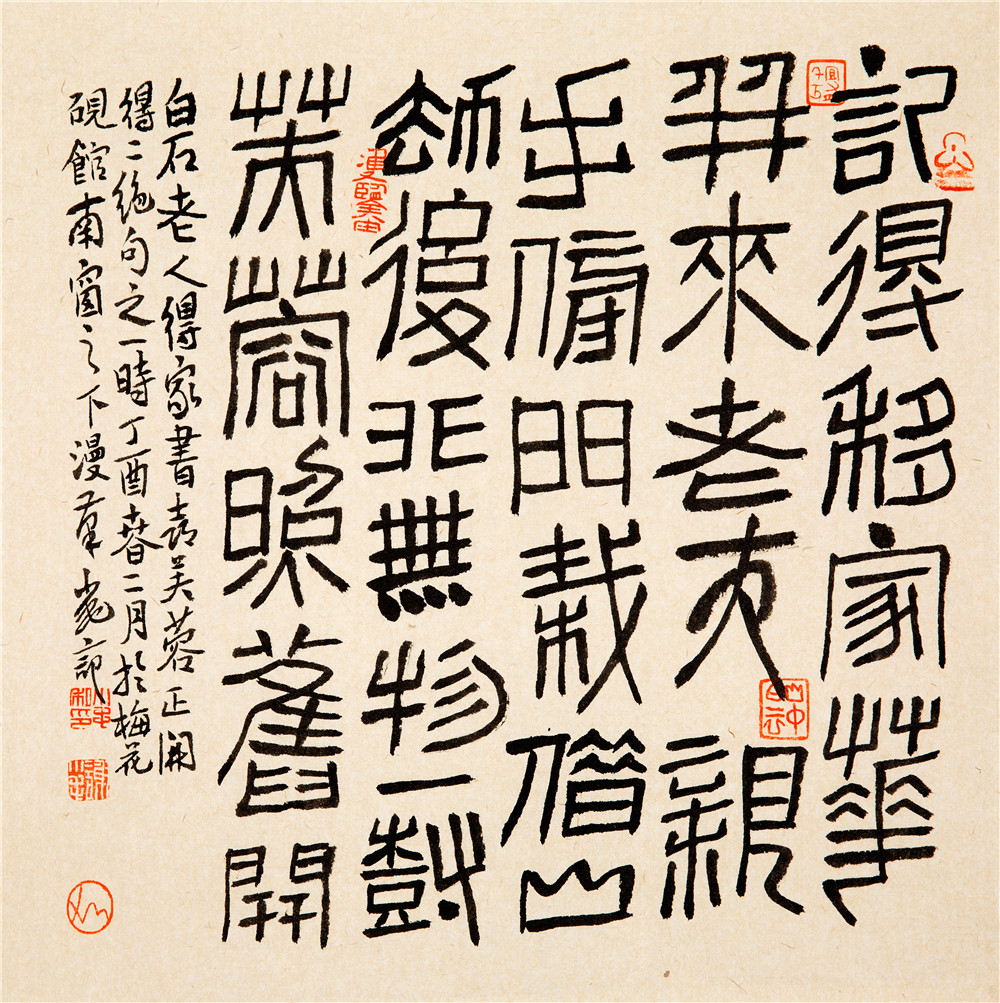 記得移家華
幷來老夫親
手傍門栽借山
劫後非無物一樹
芙蓉照舊開
白石老人得家書喜芙蓉正開
得二絕句之一時丁酉春二月於梅花
硯館南窗之下漫記